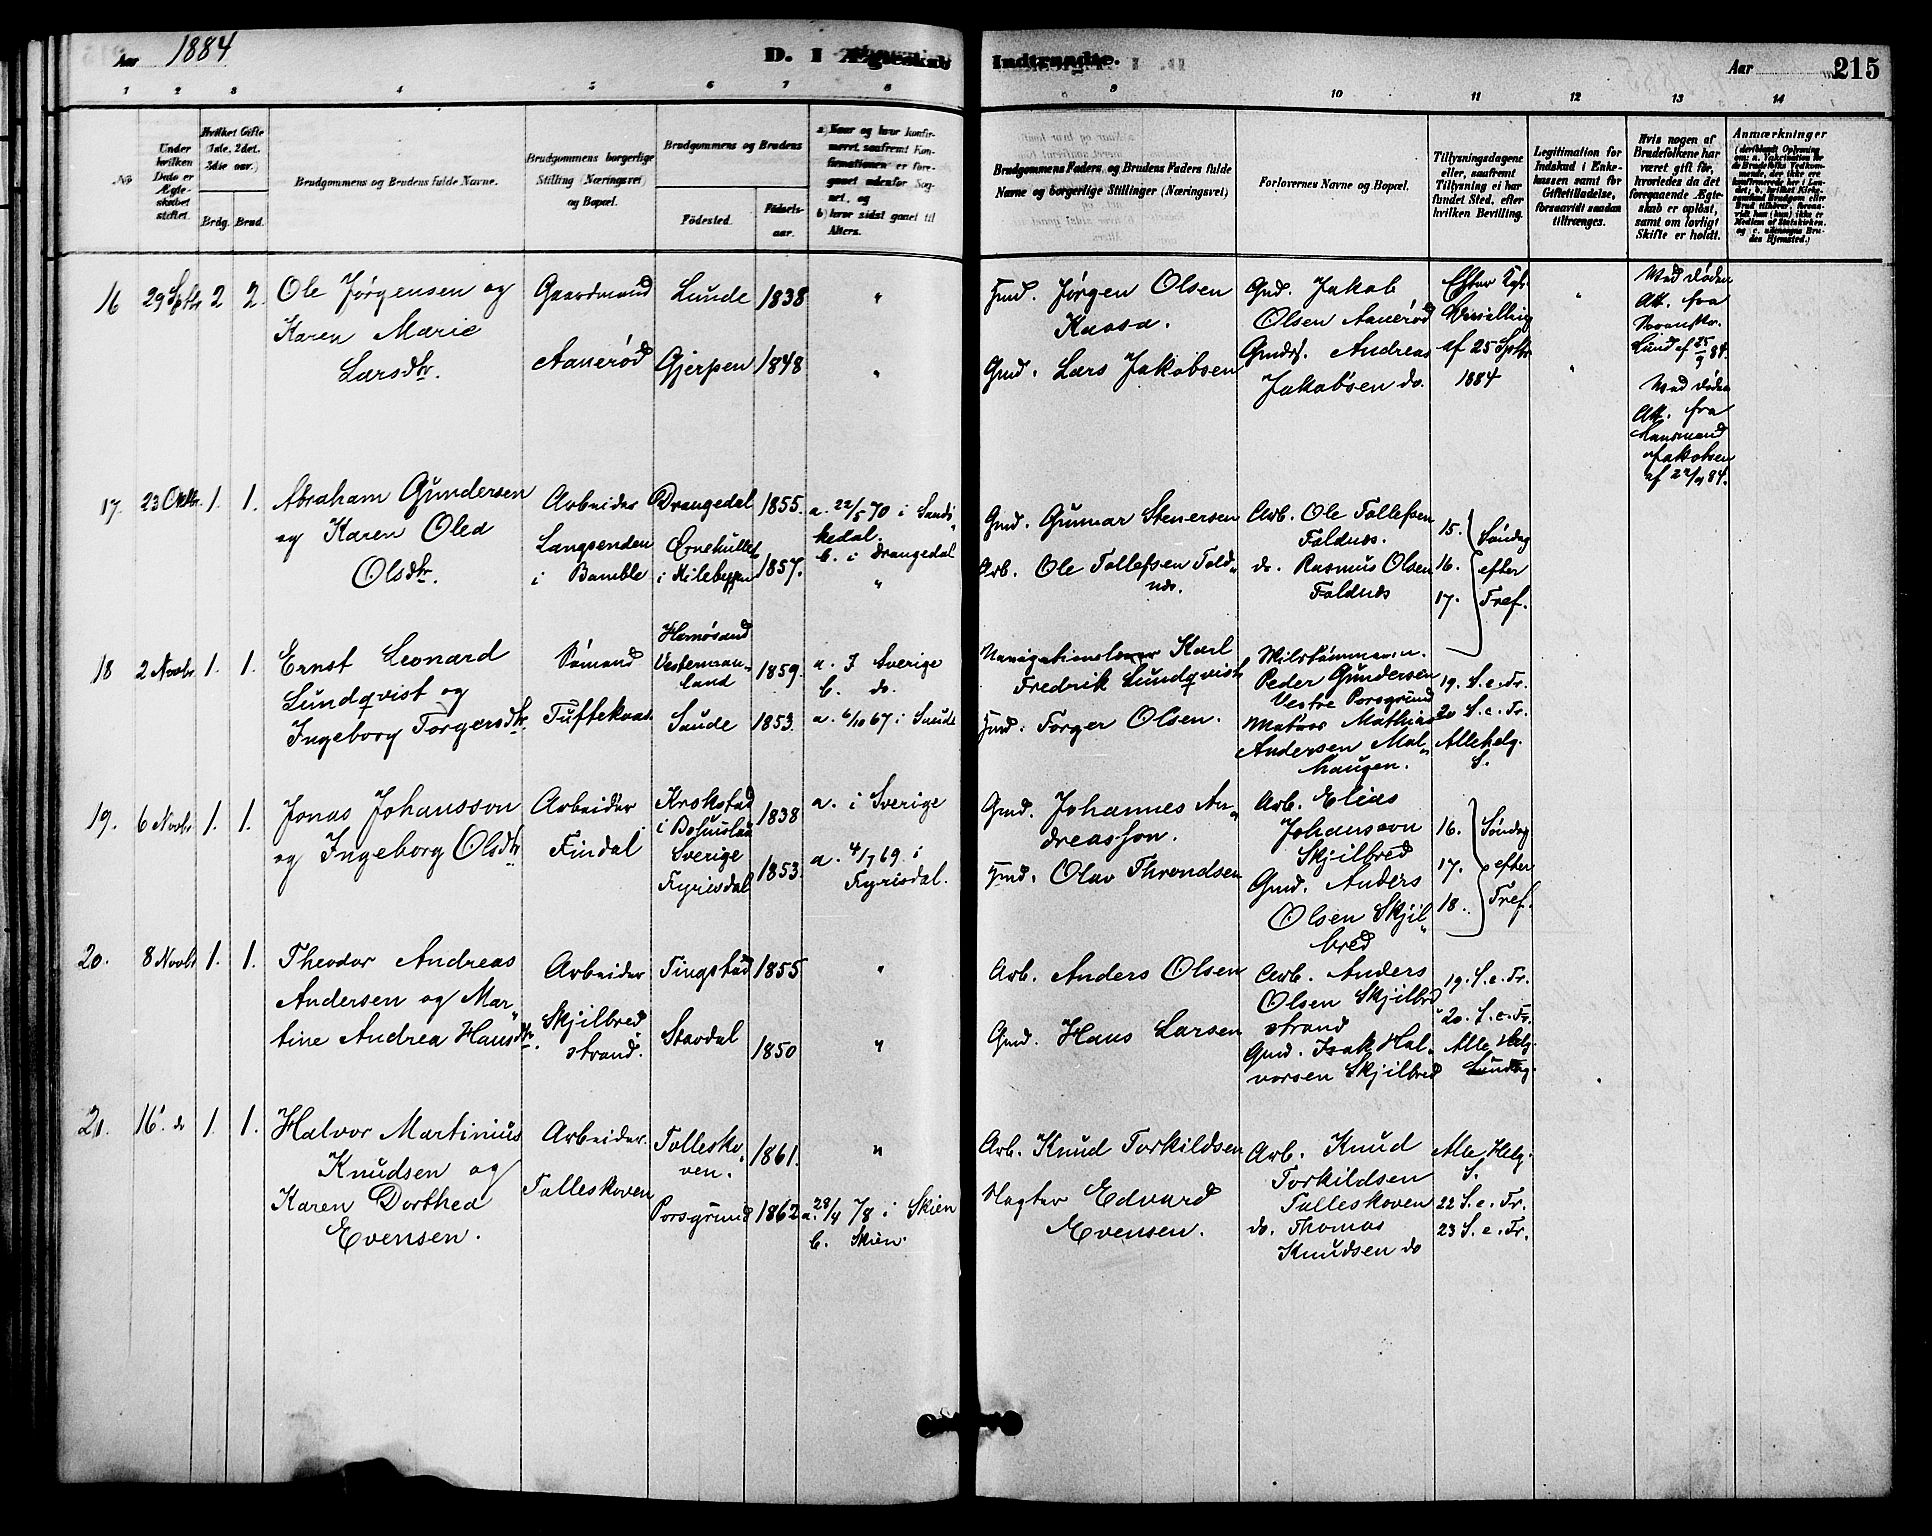 Aar 1884
D. I Ægteskab Indtraadte.
Aar
215
1 2 3 4 5 6 7 8 9 10 11 12 13 14
No
Under hvilken Dato er Ægteskabet stiftet.
Hvilket Gifte (1ste, 2det, 3die osv.)
Brdg. Brud.
Brudgommens og Brudens fulde Navne.
Brudgommens borgerlige Stilling (Næringsvei) og Bopæl.
Brudgommens og Brudens
Födested.
Födselsaar.
a) Naar og hvor konfirmeret, saafremt Konfirmationen er foregaaet udenfor Sognet, og
b) hvor sidst gaaet til Alters.
Brudgommens Faders og Brudens Faders fulde Navne og borgerlige Stillinger (Næringsvei)
Forlovernes Navne og Bopæl.
Tillysningsdagene eller, saafremt Tillysning ei har fundet Sted, efter hvilken Bevilling.
Legitimation for Indskud i Enkekassen samt for Giftetilladelse, forsaavidt saadan tiltrænges.
Hvis nogen af Brudefolkene har været gift før, hvorledes da det foregaaende Ægteskab er opløst, samt om lovligt Skifte er holdt.
Anmærkninger
16 29 Septr 2 2.
Ole Jørgensen og
Karen Marie
Larsdtr.
Gaardmand
Aanerød
Lunde 1838 "
Gjerpen 1848 "
Gmd. Jørgen Olsen
Kaasa.
Gmd. Lars Jakobsen
Gmd. Jakob
Olsen Aanerød
Gmdss. Andreas
Jakobsen do.
Efter Kgl.
Bevilling
af 25 Septr
1884
"
"
Ved Døden
Att. fra
Lund af 25/9 84.
Ved Døden
Att. fra
Lensmand
Jakobsen
af 22/9 84.
17. 23 Oktbr. 1. 1.
Abraham Gundersen
og Karen Olea
Olsdtr.
Arbeider
Langsenden
i Bamble
Drangedal 1855.
Ørnehullet
i Kilebygden 1857.
a. 22/5 70 i Sandö
kedal.
b. i Drangedal
"
Gmd. Gunnar Stenersen
Arb. Ole Tollefsen Fold„
næs.
Arb. Ole Tollefsen
Foldnæs.
do. Rasmus Olsen
Foldnæs
15. Søndag
16. efter
17. Tref.
18 2 Novbr. 1. 1.
Ernst Leonard
Lundqvist og
Ingeborg Torgersdtr.
Sømand
Tuftekaas
Hernøsand
Vesterman„
land 1859.
Saude 1853.
a. I Sverige
b. do.
a. 6/10 67 i Saude
Navigationslærer Karl
Fredrik Lundqvist
Gmd. Torger Olsen.
Peder Gundersen
Vestre Porsgrund
Matros Mathias
Andersen Mal„
haugen.
19. S. e. Tr.
20 S. e. Tr.
Allehelg.
S.
19. 6 Novbr 1. 1.
Jonas Johansson
og Ingeborg Olsdtr
Arbeider
Findal
Krokstad
i Bohuslän
Sverige 1838
Fyrisdal 1853.
a. i Sverige
a. 4/7 69. i
Fyrisdal.
Gmd. Johannes An„
dreasson.
Gmd. Olav Throndsen
Arb. Elias
Johansson
Skjilbred
Gmd. Anders
Olsen Skjil„
bred
16. Søndag
17. efter
18. Tref.
20. 8 Novbr 1. 1.
Theodor Andreas
Andersen og Mar„
tine Andrea Hansdtr.
Arbeider
Skjilbred
strand.
Tingstad 1855 "
Stavdal 1850 "
Arb. Anders Olsen
Gmd. Hans Larsen
Arb. Anders
Olsen Skjilbred
strand
Gmd. Isak Hal„
vorsen Skjilbred
19. S. e. Tr.
20. S. e. Tr.
Alle Helg.
Søndag.
21. 16. do 1. 1.
Halvor Martinius
Knudsen og
Karen Dorthea
Evensen.
Arbeider.
Tolleskoven
Tollesko„
ven. 1861. "
Porsgrund 1862
a. 28/4 78 i Skien
b. Skien.
Arb. Knud Torkildsen
Vægter Edvard
Evensen.
Arb. Knud
Torkildsen
Tolleskoven
do. Thomas
Knudsen do
Alle Helg.
S.
22 S. e. Tr.
23 S. e. Tr.